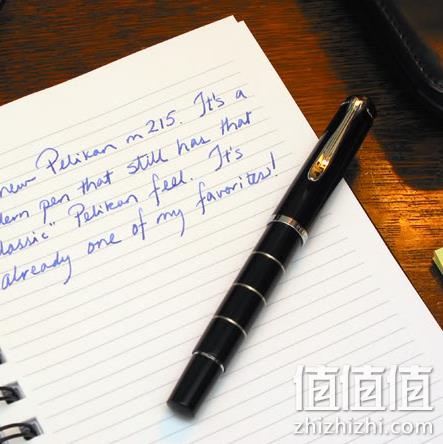 new Pelikan m215. It's a
dern pen that still has that
lassic" Pelikan feel. It's
already one of my favorites!
值值值
zhizhizhi.com